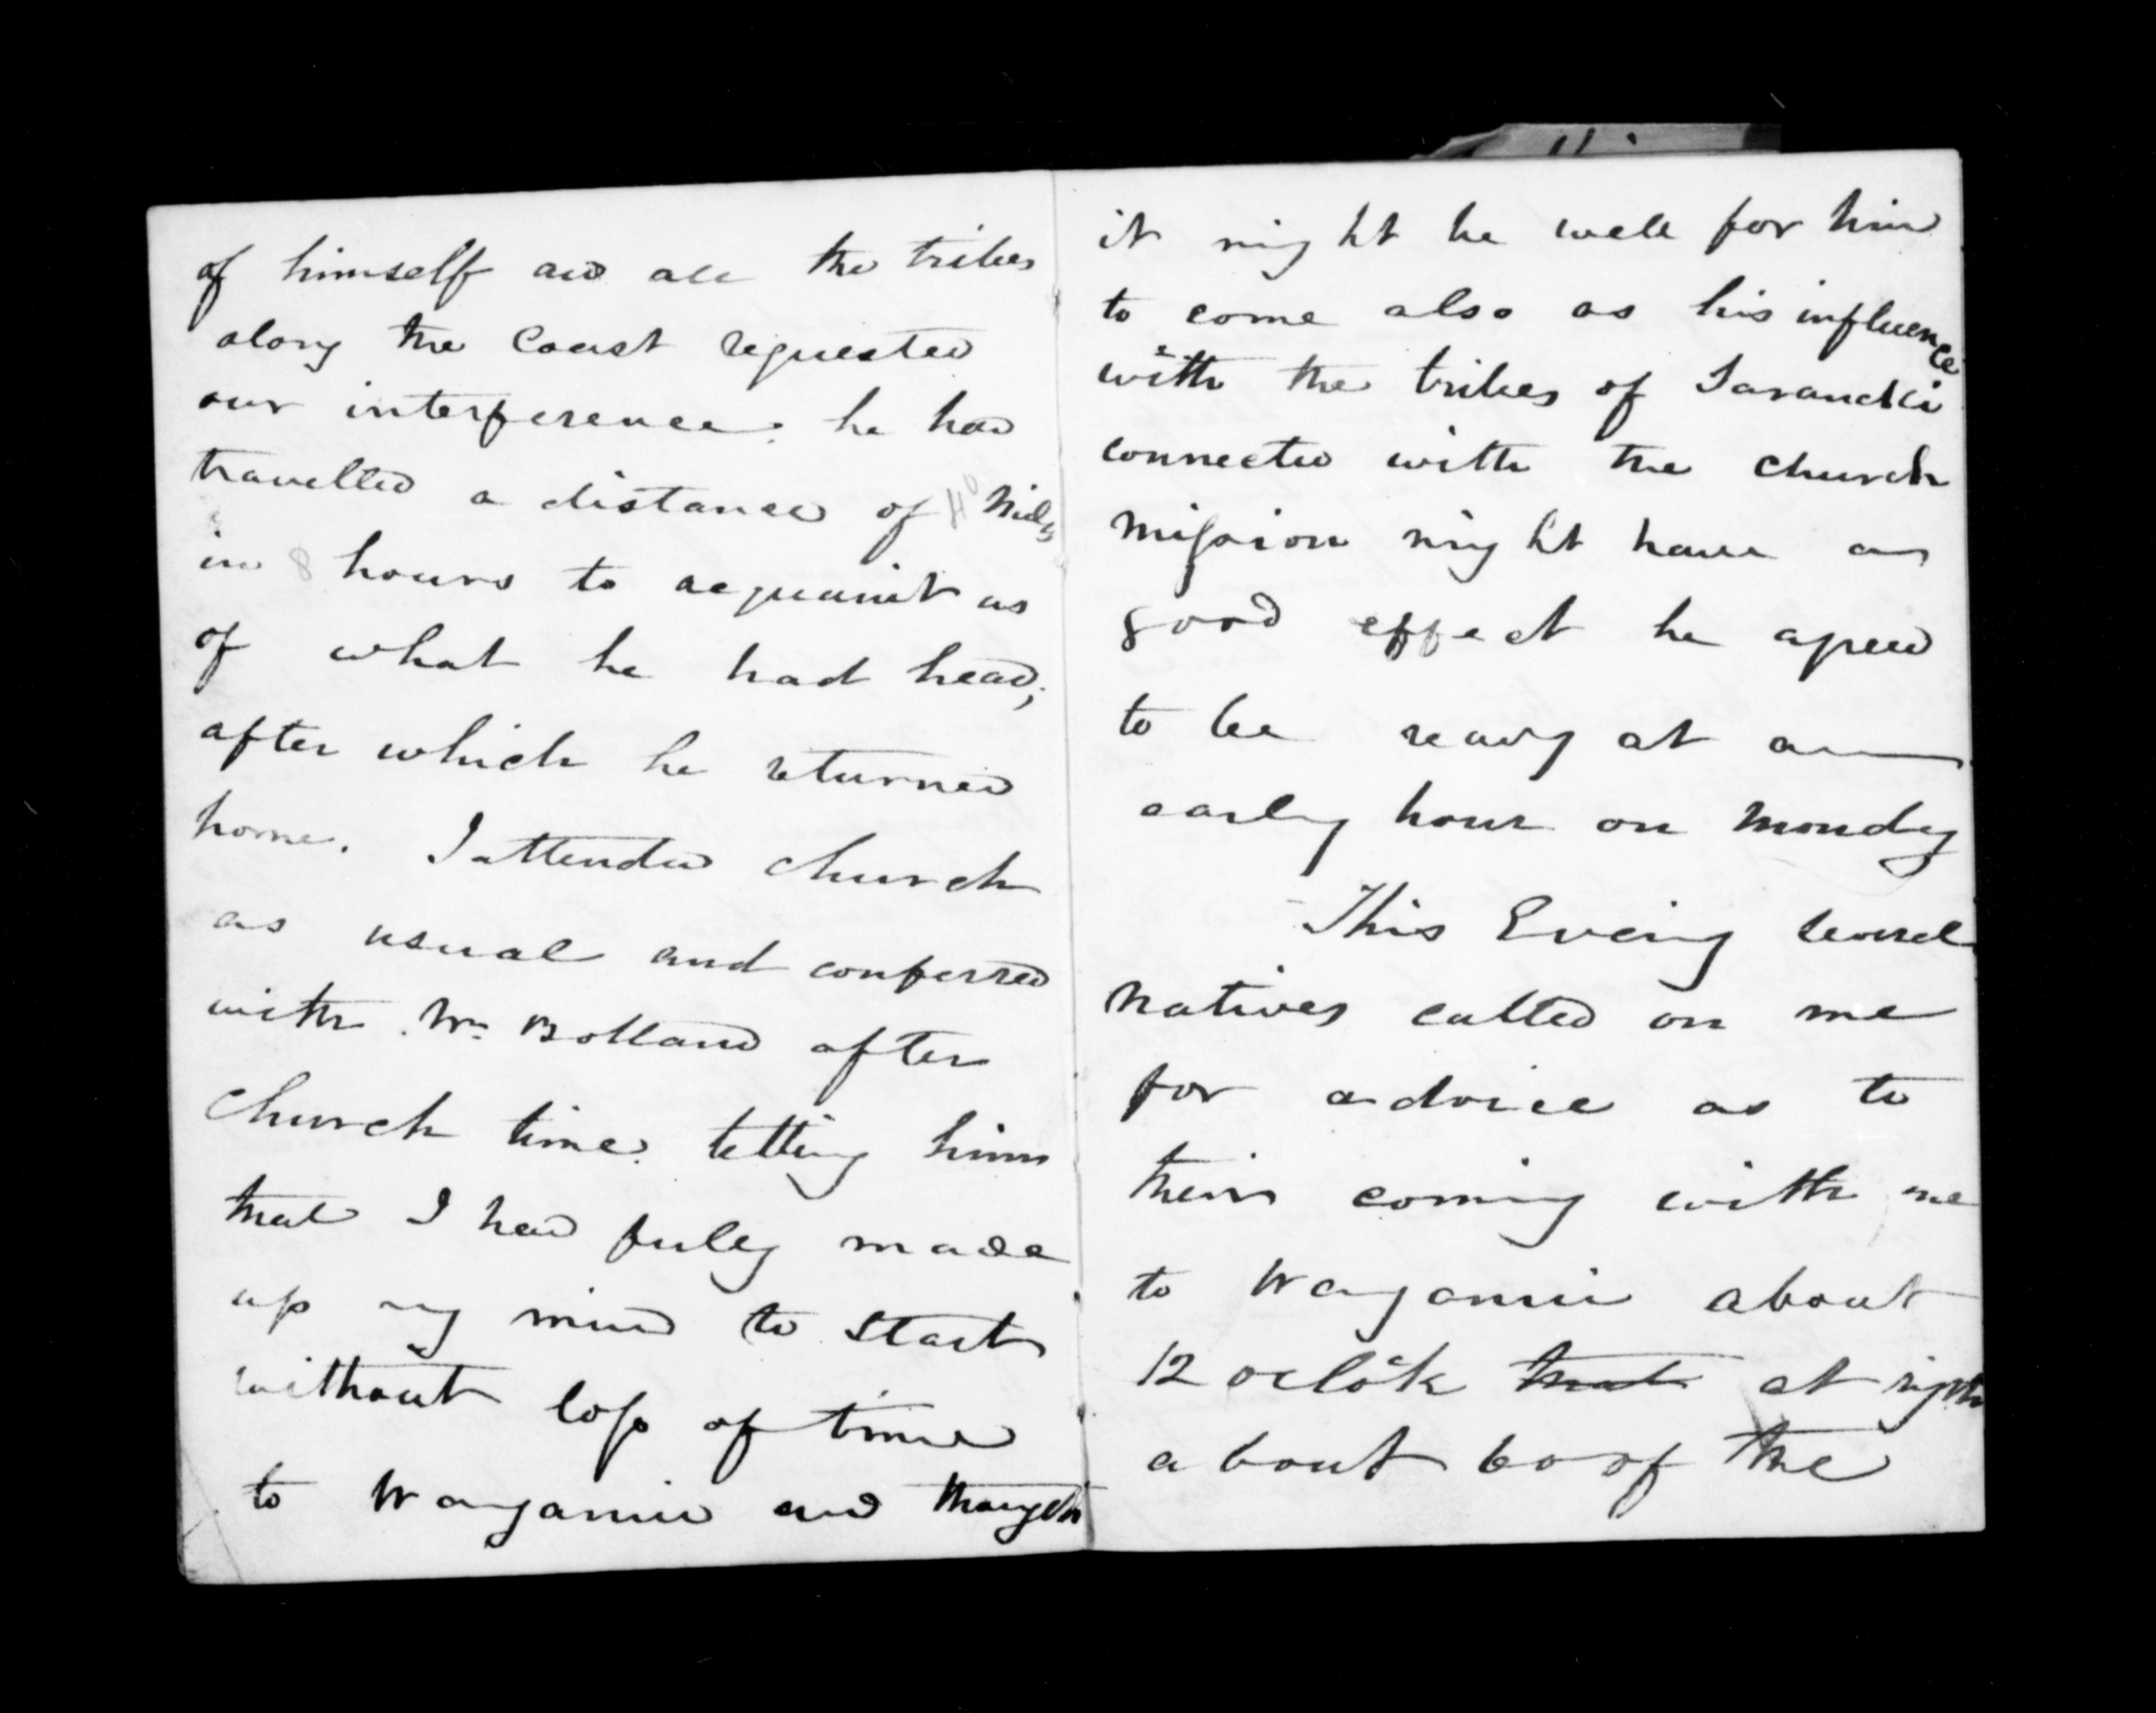 of himself and all the tribes
along the Coast requested
our interference: he had
travelled a distance of 40 Miles
in 8 hours to acquaint us
of what he had head;
after which he returned
home. I attended church
as usual and conferred
with Mr. Bolland after
church time. telling him
that I had fully made
up my mind to start
without loss of time
to Wanganui and thought
it might be well for him
to come also as his influence
with the tribes of Taranaki
connected with the church
mission might have a
good effect he agreed
to be ready at an
early hour on Monday
This Evening several
natives called on me
for advice as to
their coming with me
to Wanganui about
12 oclock that at night
about 60 of the